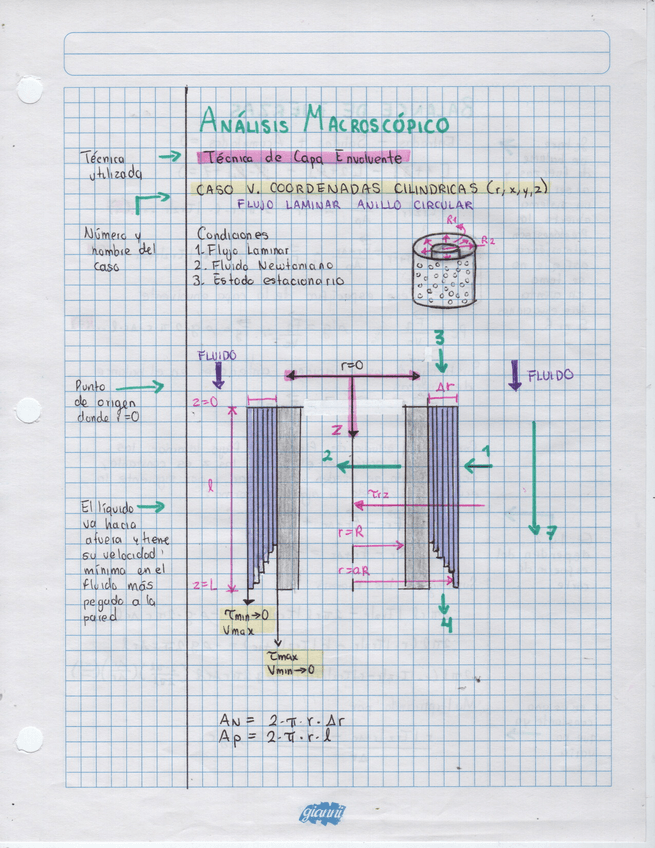 ANÁLISIS MACROSCÓPICO
Técnica
utilizada
Técnica de Capa Envolvente
CASO V. COORDENADAS CILINDRICAS (r, x, y, z)
FLUJO LAMINAR ANILLO CIRCULAR
Número y
nombre del
caso
Condiciones
1. Flujo Laminar
2. Fluido Newtoniano
3. Estado estacionario
R1
R2
3
FLUIDO
r=0
FLUIDO
Δr
Punto
de origen
donde r=0
z=0
z
2
1
l
τrz
El líquido
va hacia
afuera y tiene
su velocidad
mínima en el
fluido más
pegado a la
pared
r=R
7
r=aR
z=L
4
τmin→0
Vmax
τmax
Vmin→0
AN = 2·π·r·Δr
Ap = 2·π·r·l
gianni